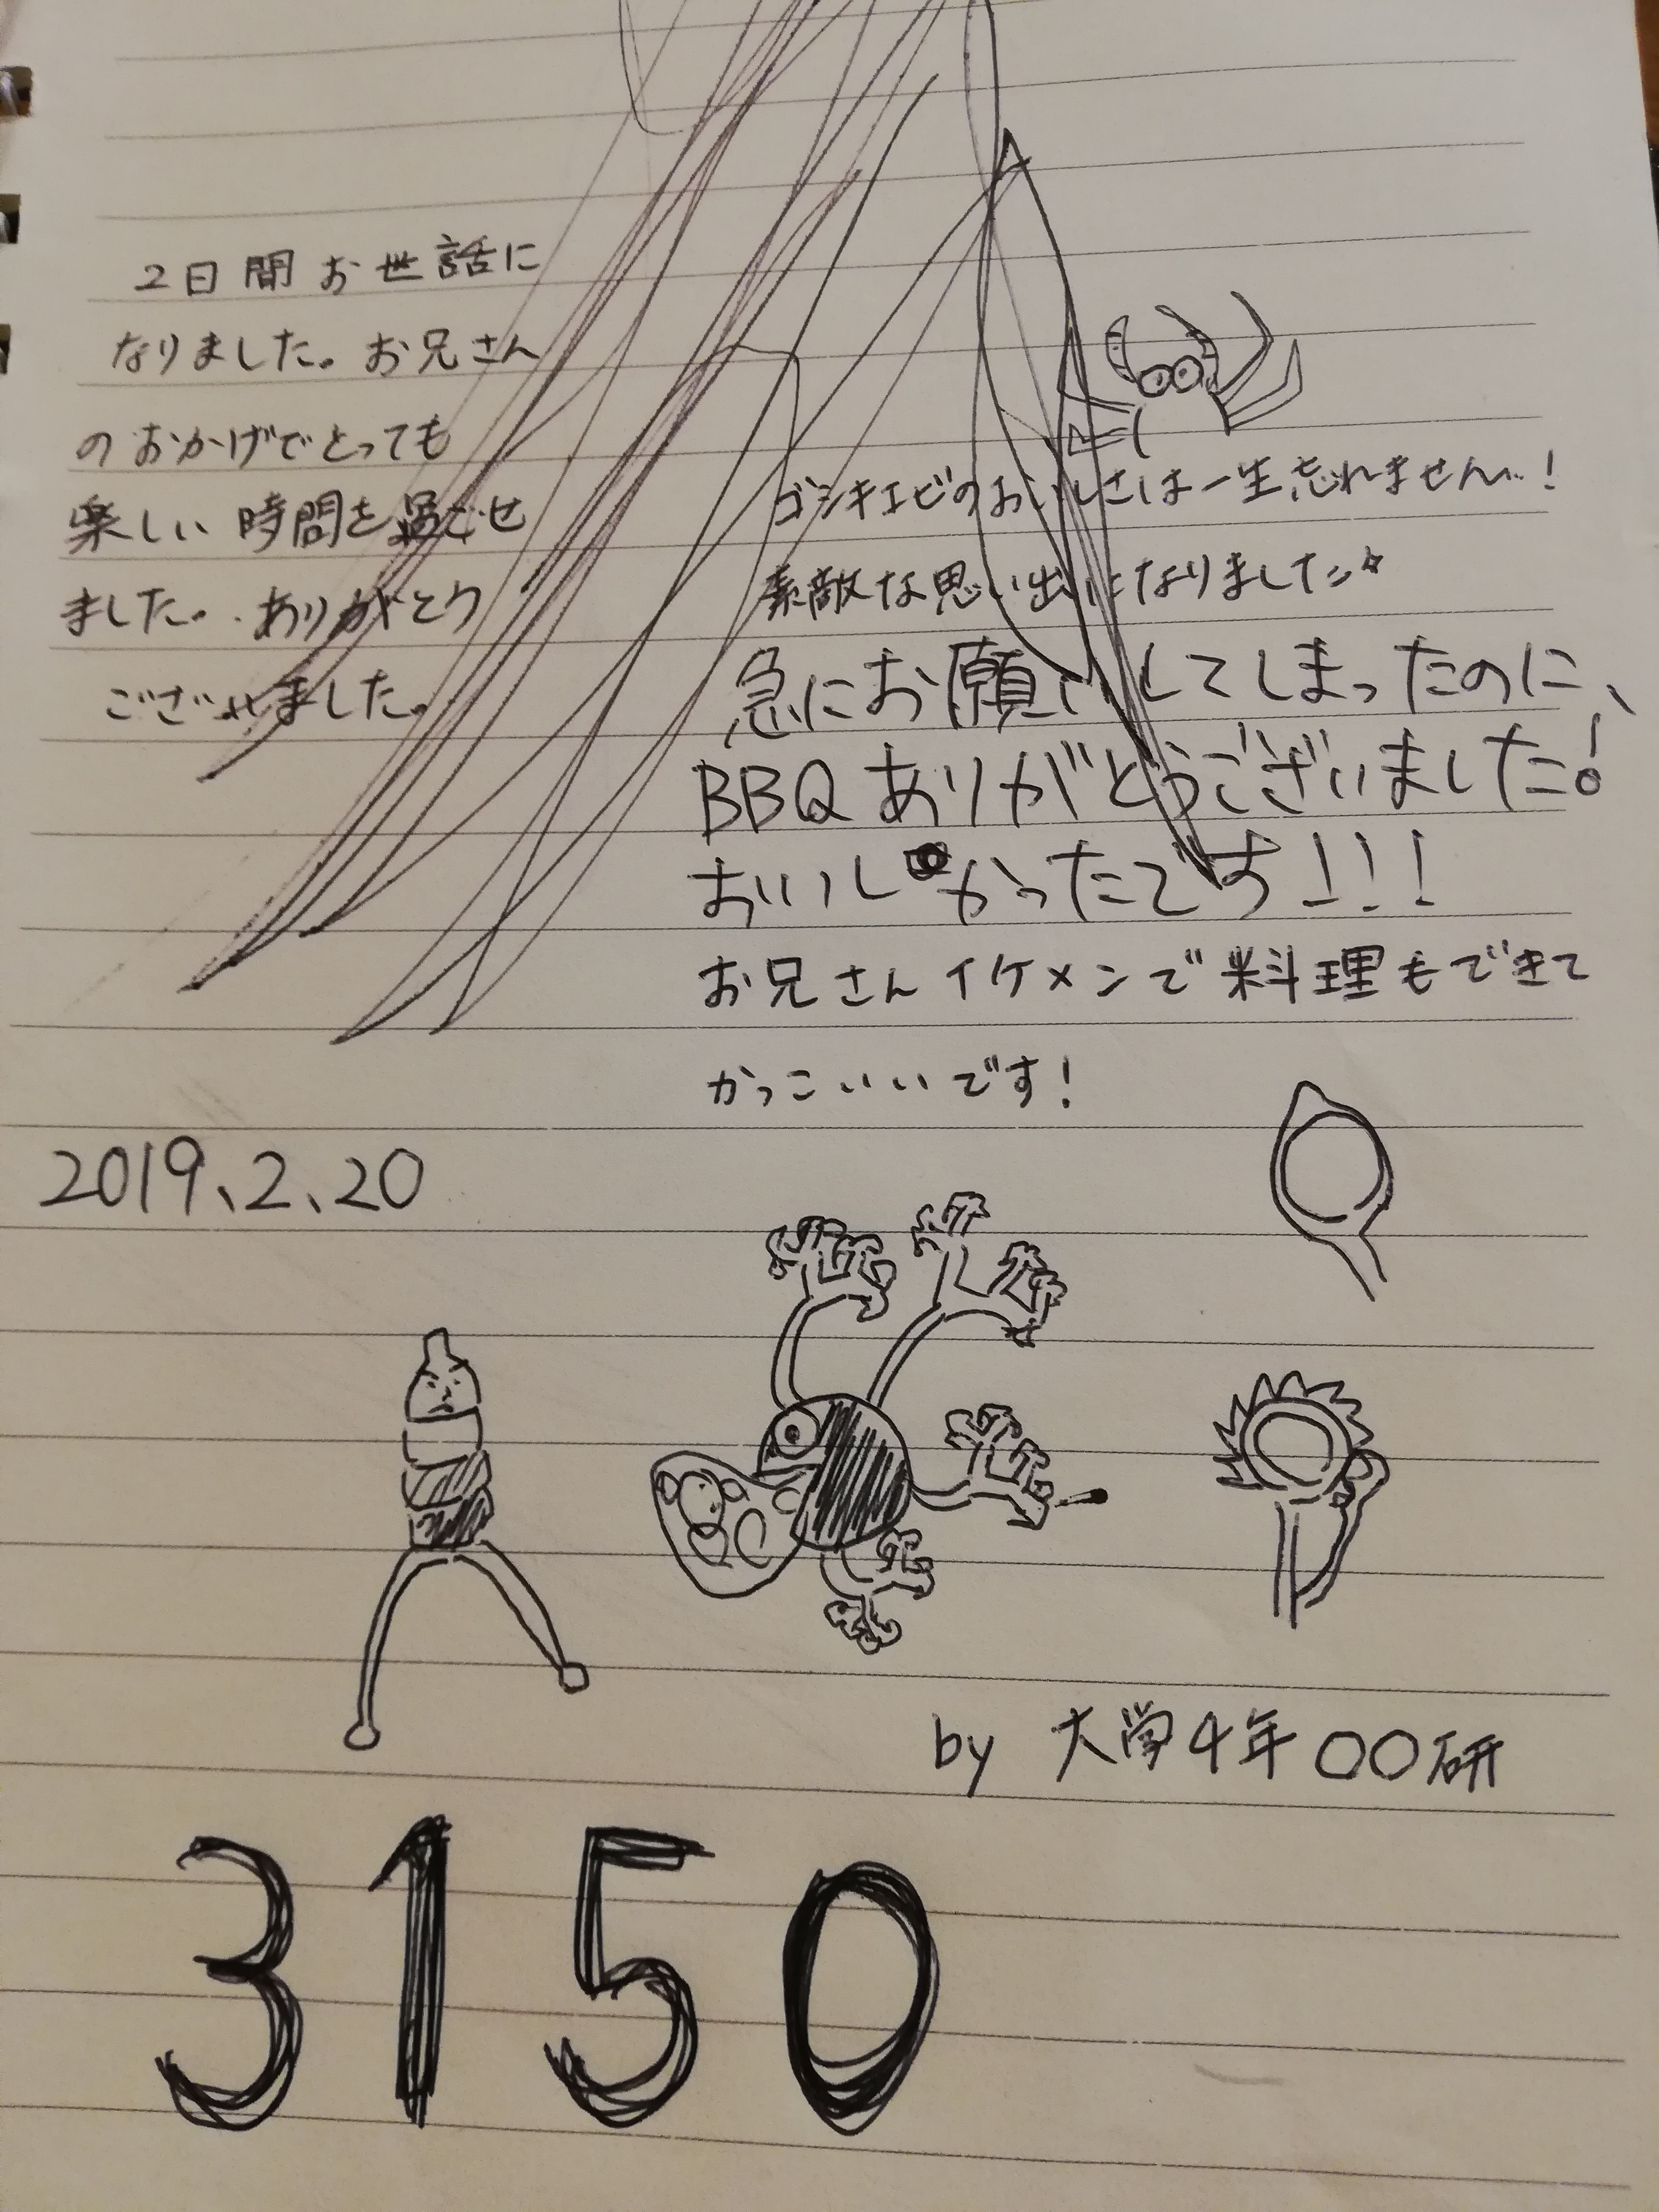 2日間お世話に
なりました。お兄さん
のおかげでとっても
楽しい時間を過ごせ
ました。ありがとう
ございました。
ゴシキエビのおいしさは一生忘れません…!
素敵な思い出になりました☆
急にお願いしてしまったのに、
BBQありがとうございました!
おいしかったです!!!
お兄さんイケメンで料理もできて
かっこいいです!
2019、2、20
by 大学4年 〇〇研
3150